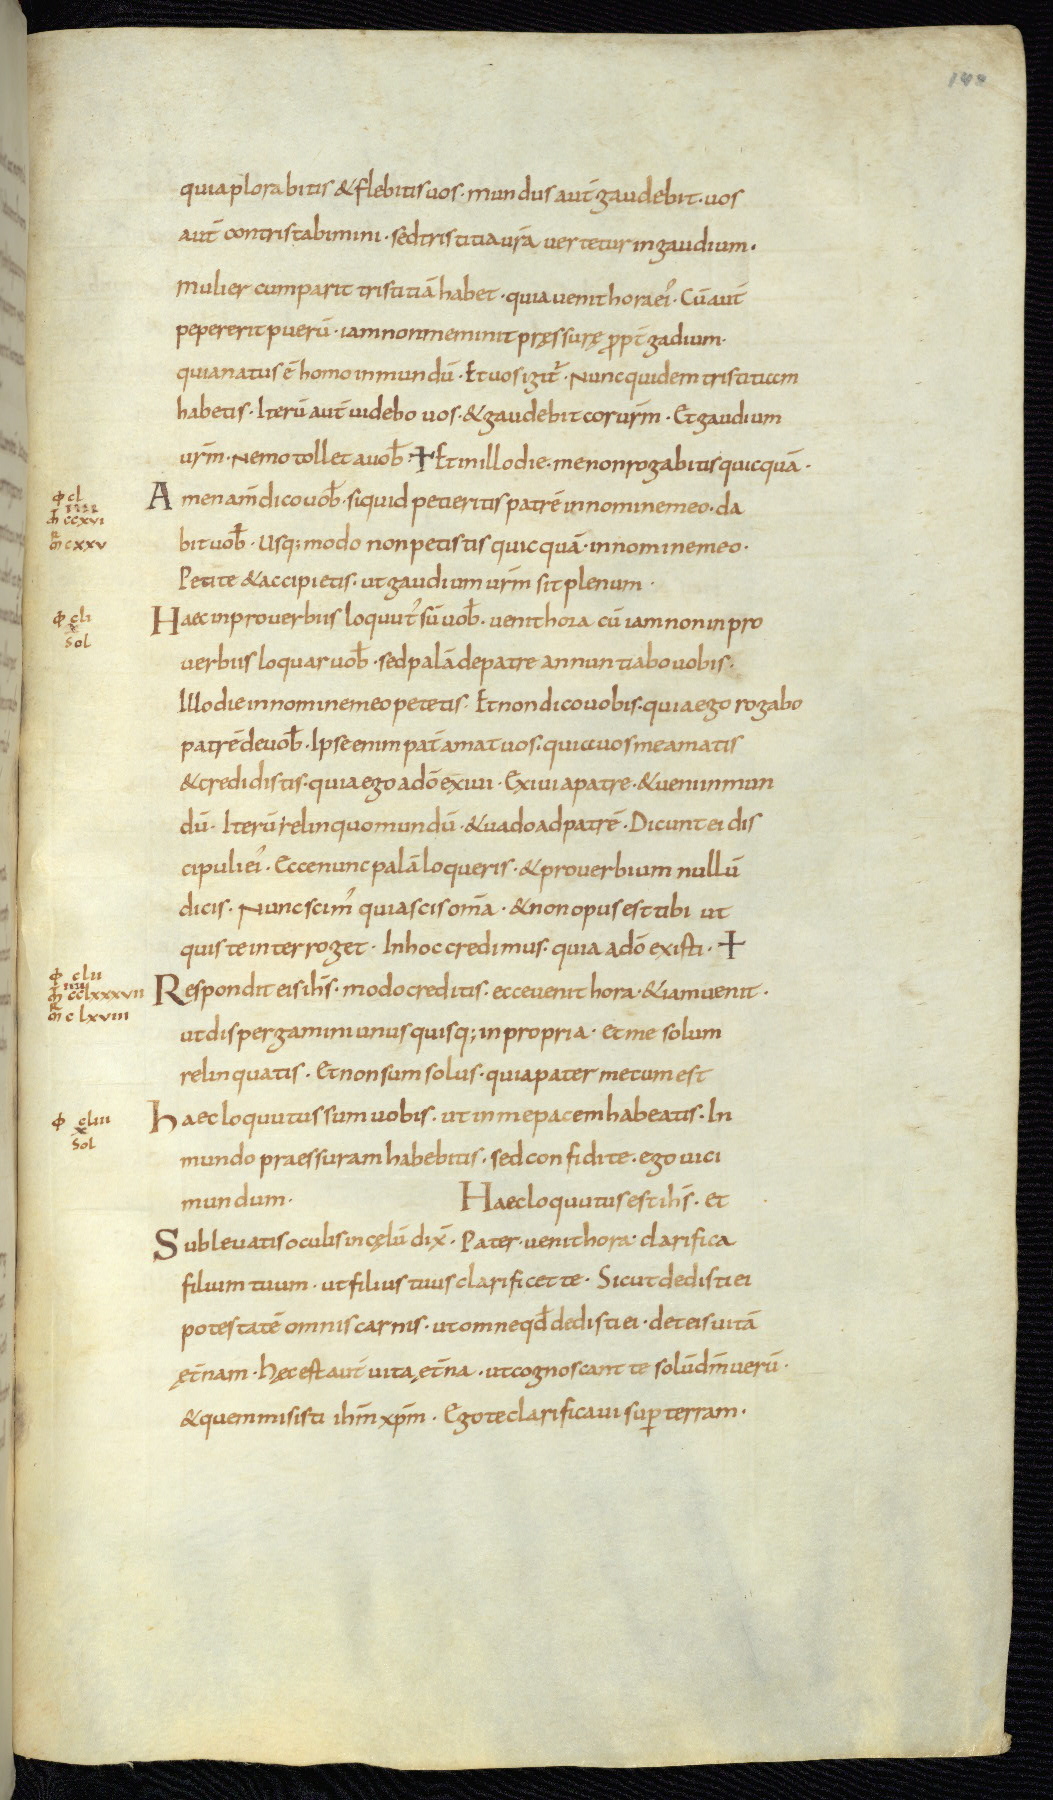 quia plorabitis & flebitis uos · mundus aut̄ gaudebit · uos
aut̄ contristabimini · sed tristitia ur̄a uertetur in gaudium ·
mulier cum parit tristitiā habet · quia uenit hora ei᾿ · Cū aut̄
pepererit puerū · iam non meminit pręssurę ꝓpt̄ gadium ·
quia natus ē homo in mundū · Et uos igit᾿ · Nunc quidem tristitiam
habetis · Iterū aut̄ uidebo uos · & gaudebit cor ur̄m · Et gaudium
ur̄m · Nemo tollet a uob̄ · ✝ Et in illo die · me non rogabitis quicquā ·
Φ cl
īīīī
m̄ ccxvi
m̄ cxxv
Amen am̄ dico uob̄ · si quid petieritis patrē in nomine meo · da
bit uob̄ · Usq; modo non petistis quicquā · in nomine meo ·
Petite & accipietis · ut gaudium ur̄m sit plenum ·
Φ cli
x
Sol
Haec in prouerbiis loquut᾿ sū uob̄ · uenit hora cū iam non in pro
uerbiis loquar uob̄ · sed palā de patre annuntiabo uobis ·
Illo die in nomine meo petetis · Et non dico uobis · quia ego rogabo
patrē de uob̄ · Ipse enim pat̄ amat uos · quia uos me amatis
& credidistis · quia ego a dō exiui · Exiui a patre · & ueni in mun
dū · Iterū relinquo mundū · & uado ad patrē · Dicunt ei dis
cipuli ei᾿ · Ecce nunc palā loqueris · & prouerbium nullū
dicis · Nunc scim᾿ quia scis om̄a · & non opus est tibi ut
quis te interroget · In hoc credimus · quia a dō existi · ✝
Φ clii
īīīī
m̄ cclxxxvii
m̄ clxviii
Respondit eis ih̄s · modo creditis · ecce uenit hora · & iam uenit ·
ut dispergamini unusquisq; in propria · et me solum
relinquatis · Et non sum solus · quia pater mecum est
Φ cliii
x
Sol
Haec loquutus sum uobis · ut in me pacem habeatis · In
mundo praessuram habebitis · sed confidite · ego uici
mundum · Haec loquutus est ih̄s · et
Subleuatis oculis in cęlū dix̄ · Pater · uenit hora · clarifica
filium tuum · ut filius tuus clarificet te · Sicut dedisti ei
potestatē omnis carnis · ut omne qd̄ dedisti ei · det eis uitā
ęt̄nam · Hęc est aut̄ uita ęt̄na · ut cognoscant te solū dm̄ uerū ·
& quem misisti ih̄m xp̄m · Ego te clarificaui suꝑ terram ·